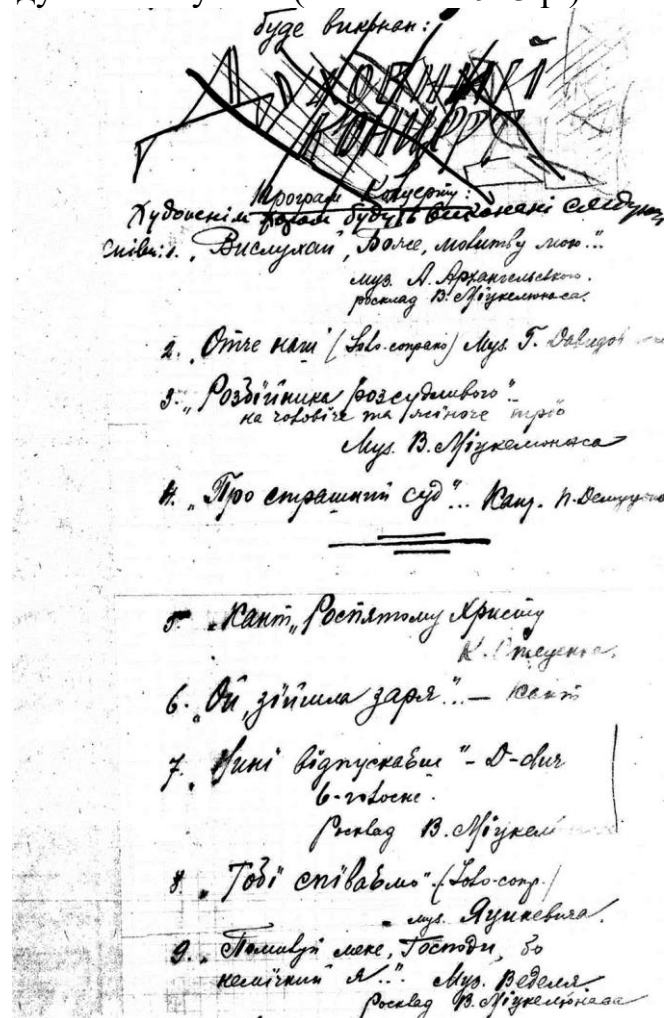 буде виконан:
ДУХОВНИЙ
КОНЦЕРТ
Програм Концерту:
Художнім хором будуть виконані слідующ
співи: 1. „Вислухай, Боже, молитву мою..."
муз. А. Архангельського.
росклад В. Міукелюнаса.
2. „Отче наш" (Solo-сопрано) Муз. Г. Давидов
3. „Розбійника розсудливого"
на чоловіче та жіноче тріо
Муз. В. Міукелюнаса
4. „Про страшний суд"... Кант. П. Демуцького
5. „Кант „Роспятому Христу
К. Стеценка.
6. „Ой, зійшла заря..." – Кант
7. „Нині відпускаєш" – Д-вич
6-голосне.
Росклад В. Міукел
8. „Тобі співаємо" (Solo-сопр.)
муз. Яцкевича.
9. „Помилуй мене, Господи, бо
немічний я..." Муз. Веделя
росклад В. Міукелюнаса